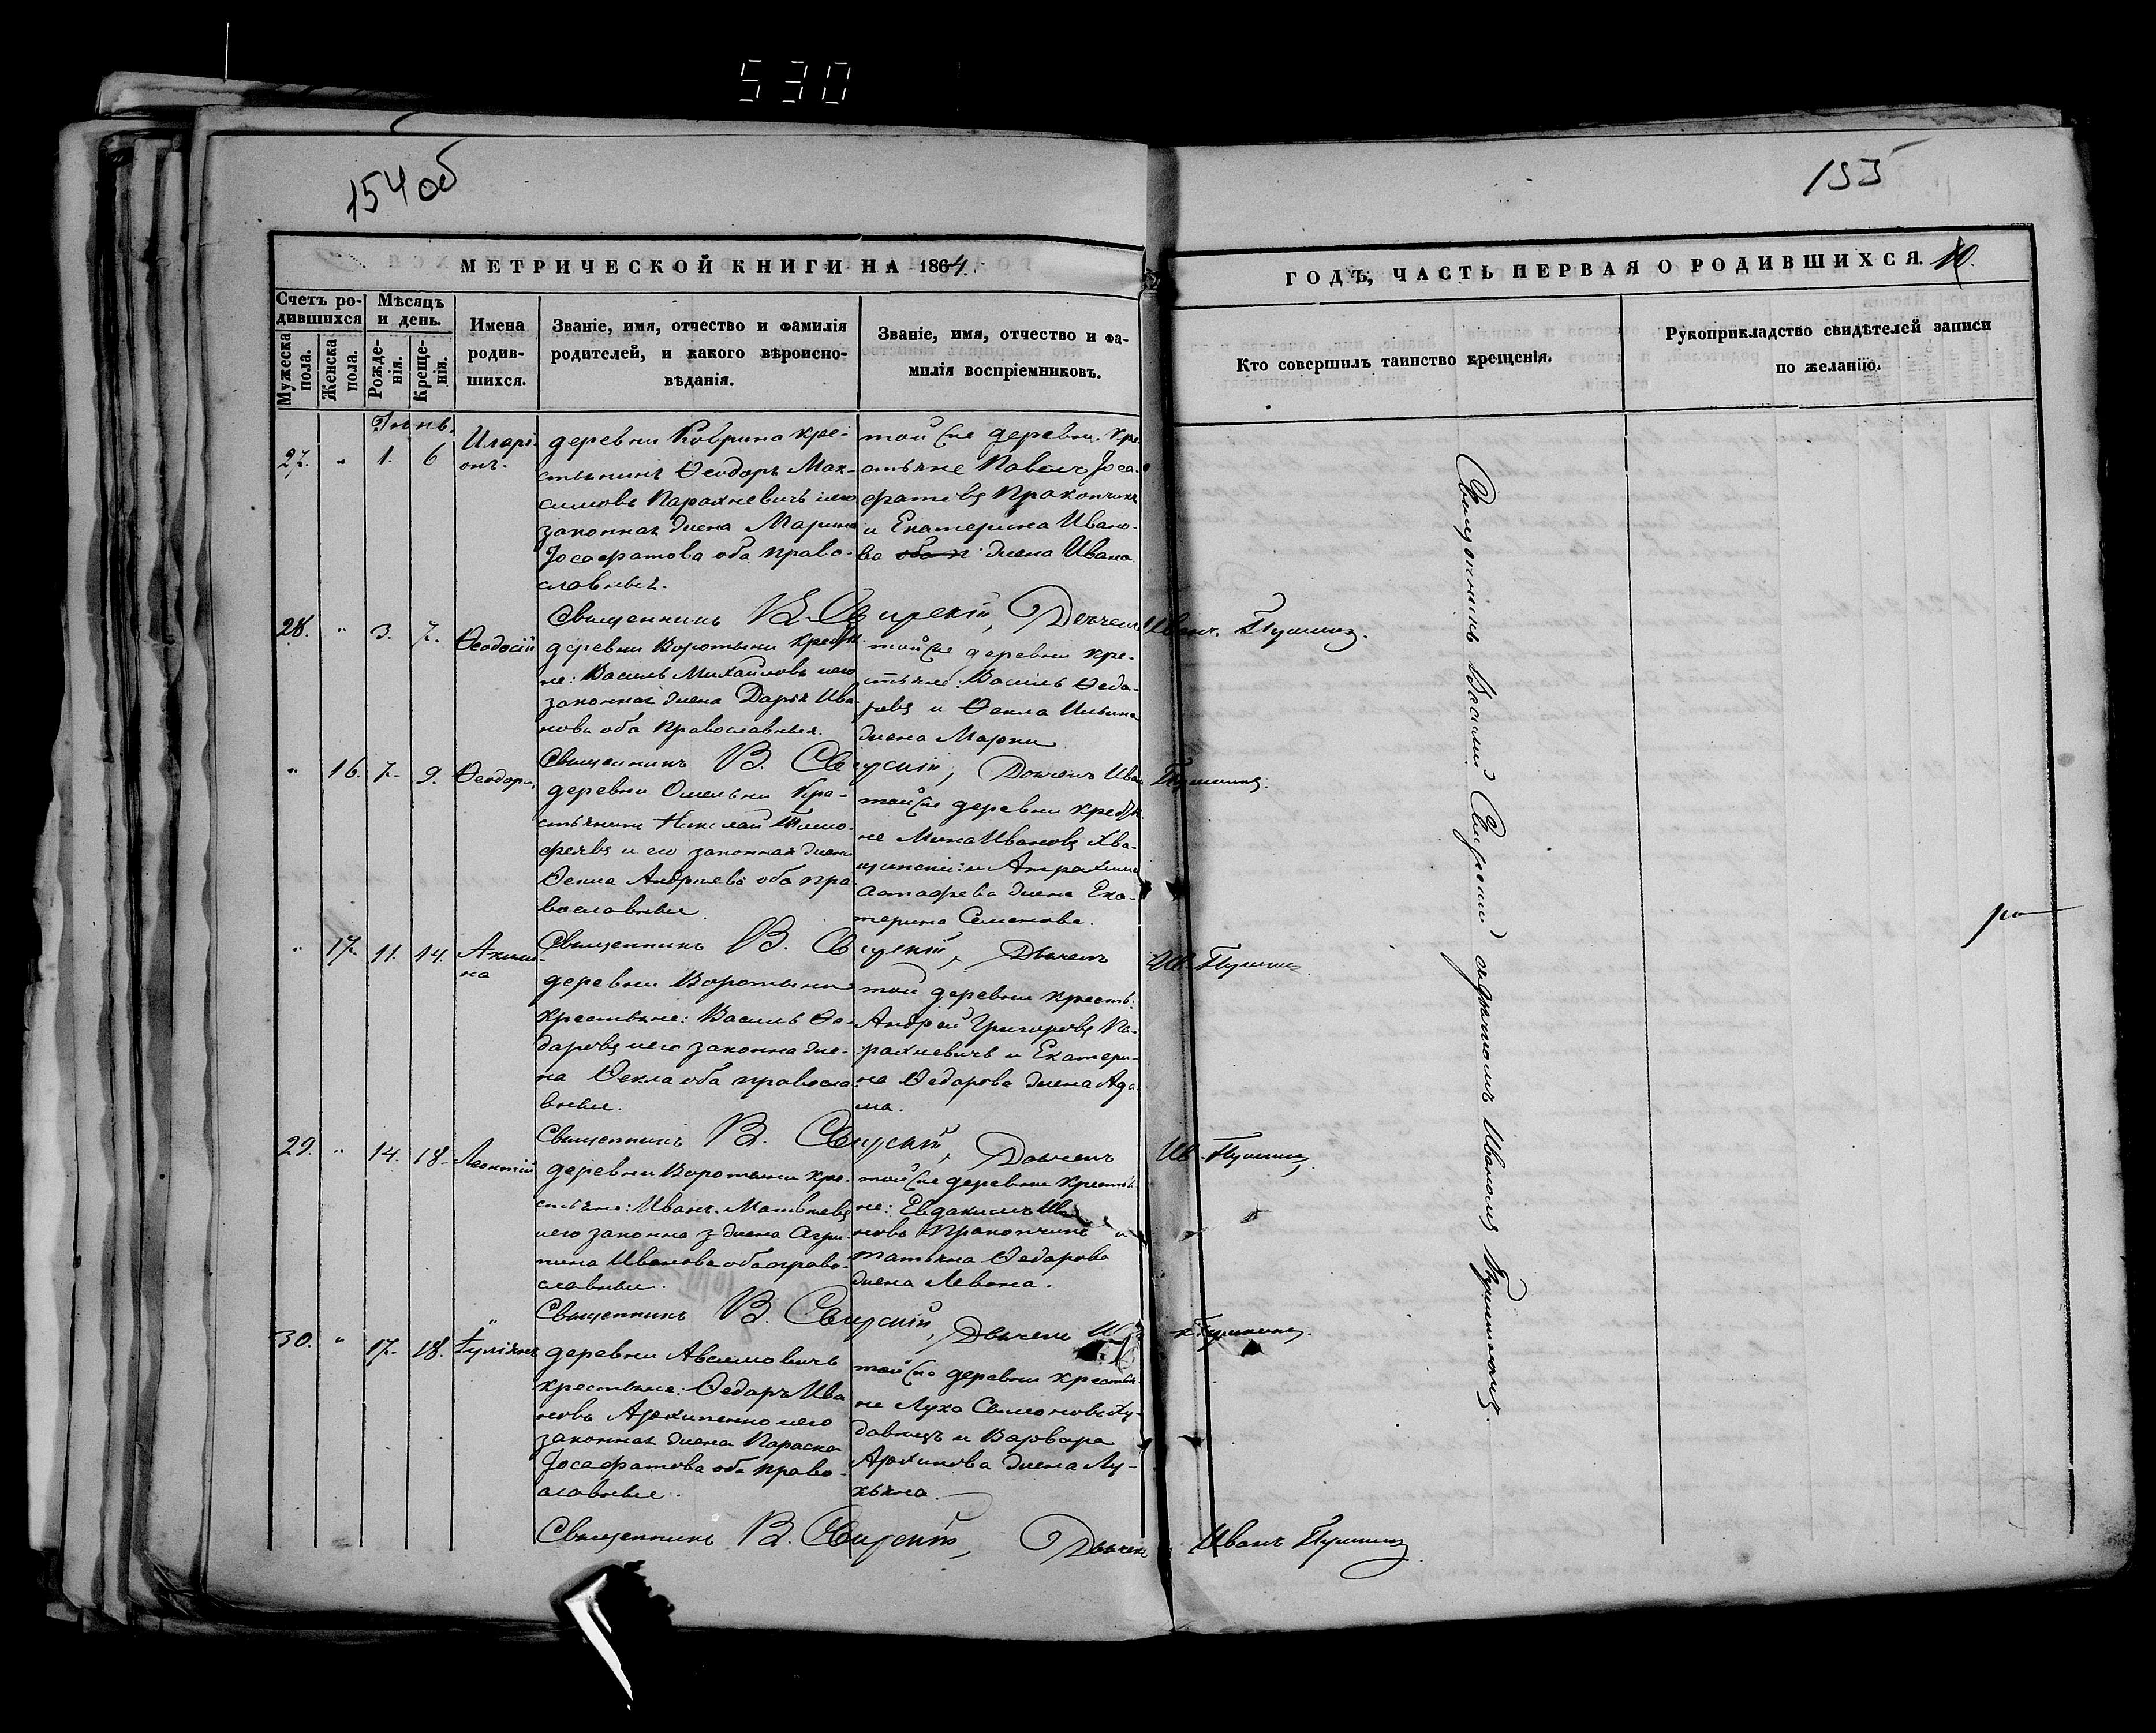 530
154 об
155
МЕТРИЧЕСКОЙ КНИГИ НА 1864
ГОДЪ, ЧАСТЬ ПЕРВАЯ О РОДИВШИХСЯ. 10.
Счетъ ро-
дившихся
Мужеска пола.
Женска пола.
Мѣсяцъ
и день.
Рожде-
нія.
Креще-
нія.
Имена
родив-
шихся.
Званіе, имя, отчество и фамилія
родителей, и какого вѣроиспо-
вѣданія.
Званіе, имя, отчество и фа-
милія воспріемниковъ.
Кто совершилъ таинство крещенія.
Рукоприкладство свидѣтелей записи
по желанію.
27. " 1. 6 Иларі-
онъ.
деревни Коврина кре-
стьянинъ Ѳеодоръ Мак-
симовъ Парахневичъ и его
законная жена Марина
Іосафатова оба право-
славныя.
той же деревни кре-
стьяне Павелъ Іоса-
фатовъ Пракопчикъ
и Екатерина Ивано-
ва жена Ивана
Священникъ В. Свирскій, Дьячекъ Иванъ
28. " 3. 7. Ѳеодосій
деревни Воротыни крестья
не: Василь Михайловъ и его
законная жена Дарья Ива-
нова оба православныя.
той же деревни кре-
стьяне: Василь Ѳедо-
ровъ и Ѳекла Ильина
жена Марки
Священникъ В. Свирскій, Дьячекъ Иван
" 16. 7. 9. Ѳеодора,
деревни Омельни кре-
стьянинъ Николай Тимо-
феевъ и его законная жена
Ѳекла Андреева оба пра
вославные.
той же деревни крестья
не Мина Ивановъ
Астафьева жена Ека-
терина Семенова.
Священникъ В. Свирскій, Дьячекъ
Ив.
" 17. 11. 14. Акили-
на
деревни Воротыни
крестьяне: Василь Ѳе-
даровъ и его законна же-
на Ѳекла оба правосла
вные.
той деревни кресть:
Андрей Григоровъ Па-
рахневичъ и Екатери-
на Ѳедарова жена Ада-
ма.
Священникъ В. Свирскій, Дьячекъ
Ив.
29. " 14. 18. Леонтій
деревни Воротыни кре-
стьяне: Иванъ Матвѣевъ
и его законна я жена Агри-
пина Иванова оба право-
славные.
той же деревни крестья
не: Евдакимъ Ива
новъ Пракопчикъ и
Татьяна Ѳедарова
жена Левона.
Священникъ В. Свирскій, Дьячекъ
30. " 17. 18. Іуліянъ
деревни Авсимовичъ
крестьяне: Ѳедаръ Ива
новъ Архипенко и его
законная жена Параска
Іосафатова оба право-
славные.
той же деревни крестья-
не Лука Симоновъ
и Варвара
Архипова жена Лу-
кьяна.
Священникъ В. Свирскій, Дьячекъ Иванъ
Священникъ Василій Свирскій съ дьячкомъ Иваномъ